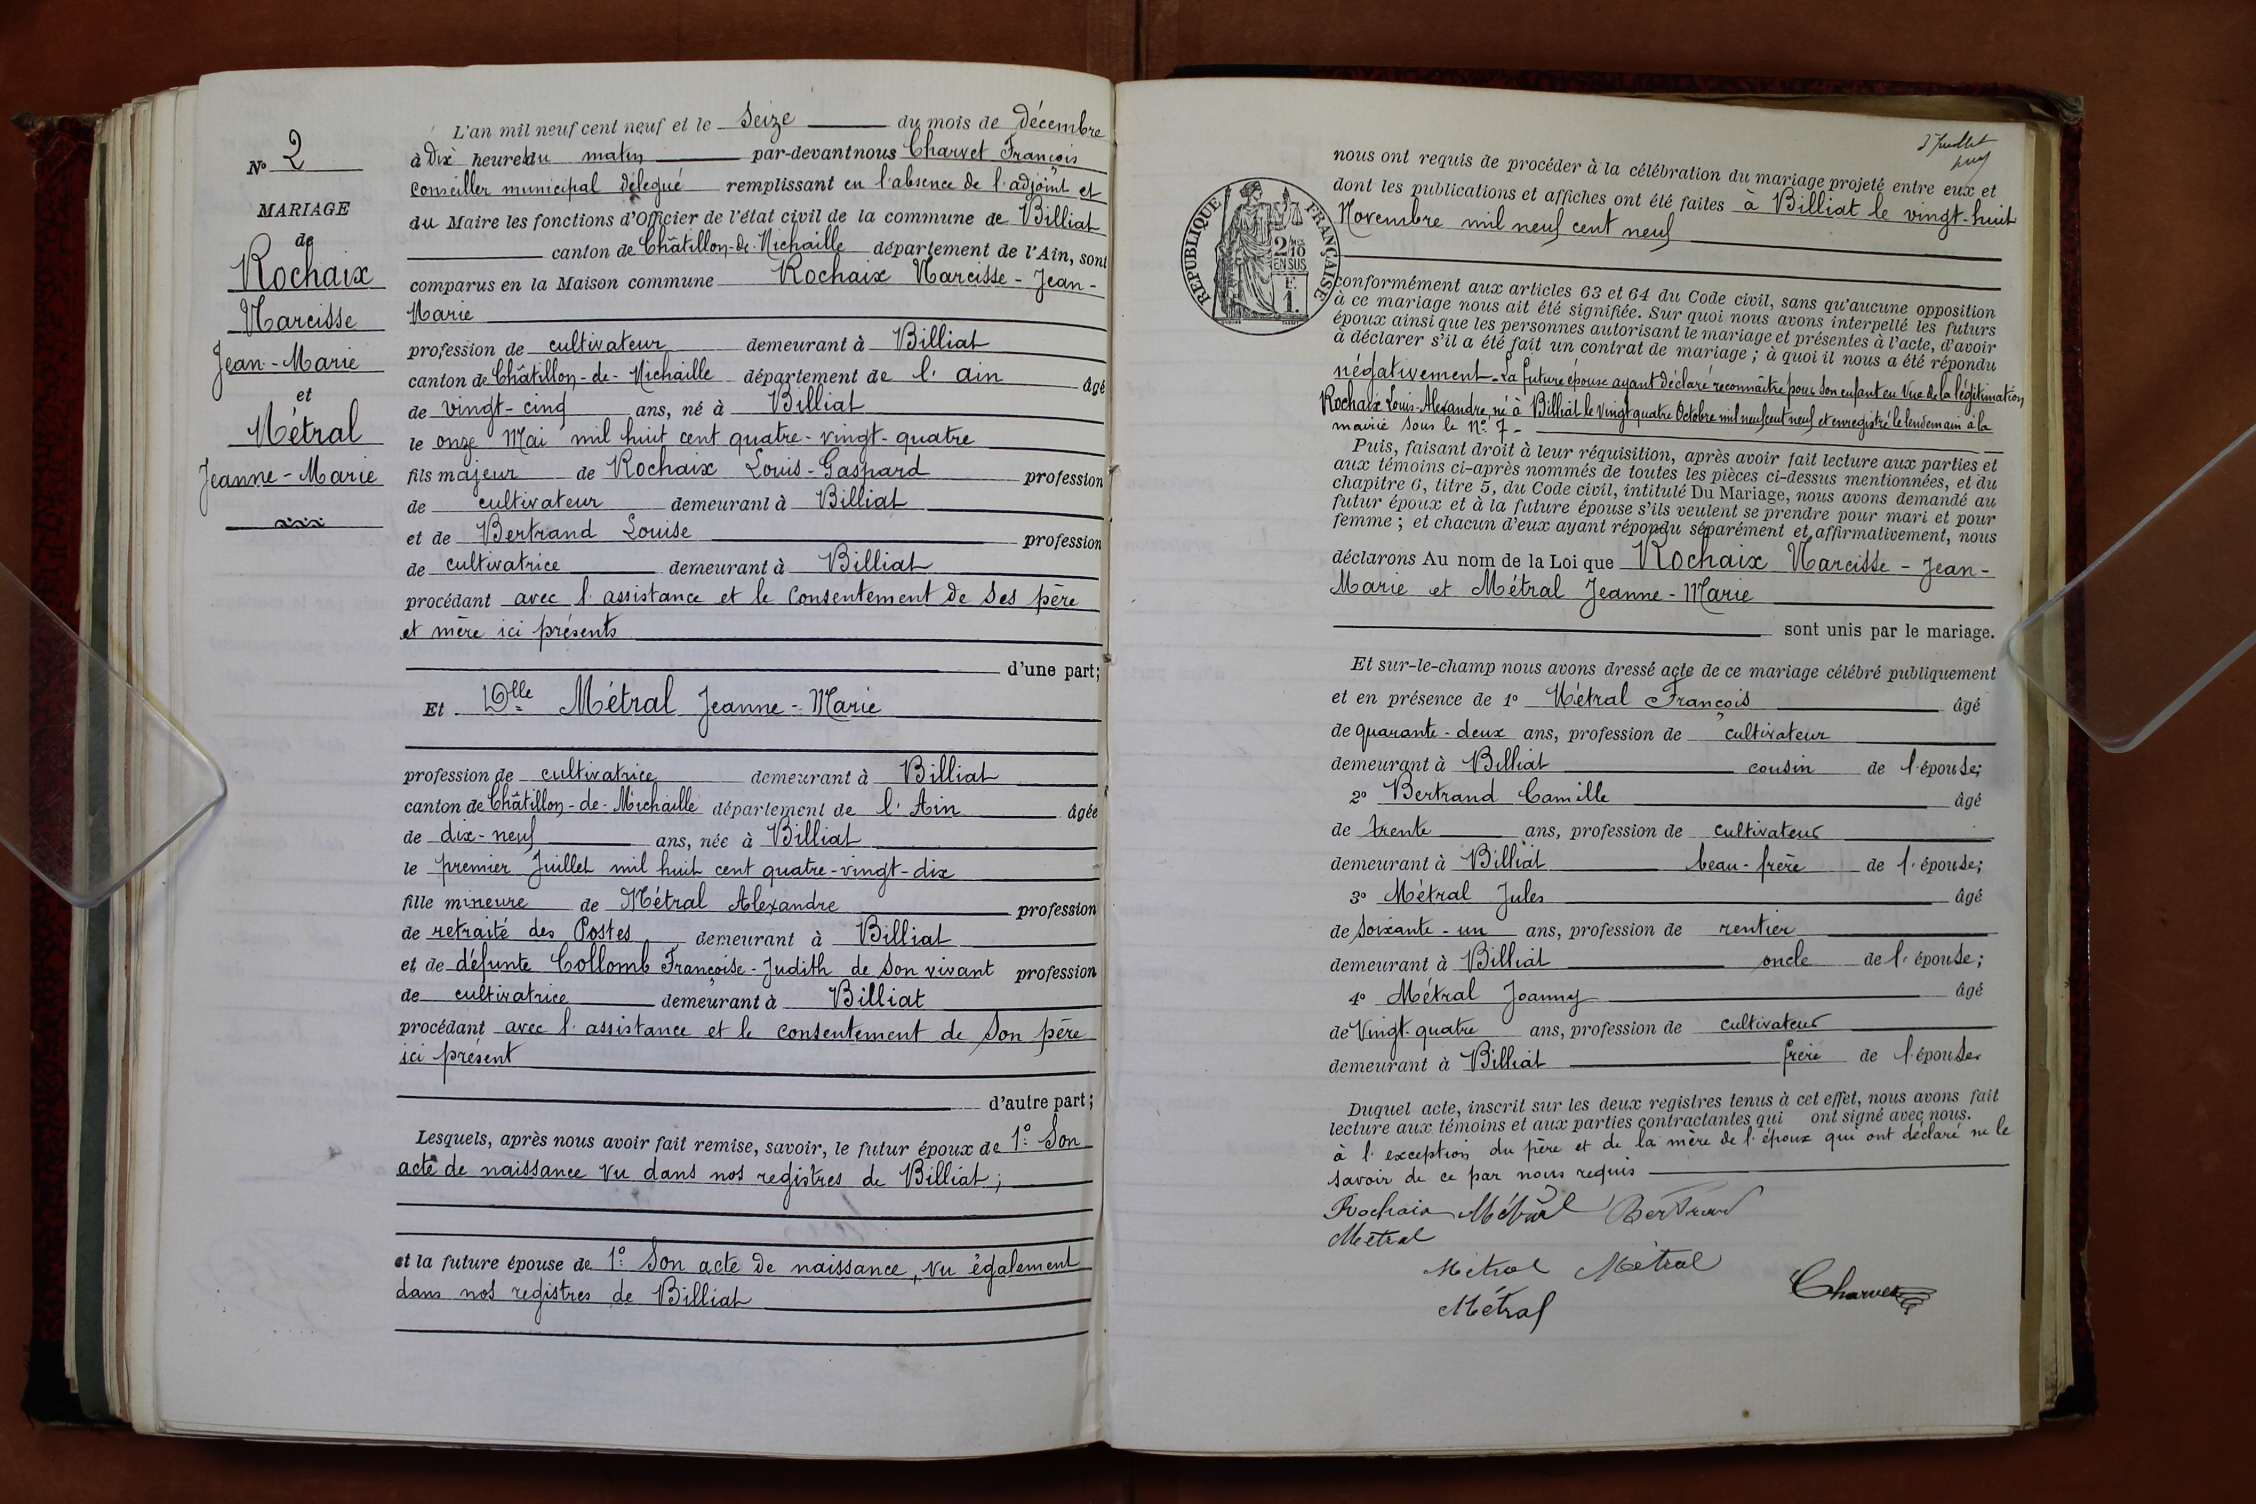 N° 2
MARIAGE
de
Rochaix
Narcisse
Jean-Marie
et
Métral
Jeanne-Marie
L'an mil neuf cent neuf et le seize du mois de décembre
à Dix heures du matin par-devant nous Charvet François
conseiller municipal délégué remplissant en l'absence de l'adjoint et
du Maire les fonctions d'Officier de l'état civil de la commune de Billiat
canton de Châtillon-de-Michaille département de l'Ain, sont
comparus en la Maison commune Rochaix Narcisse-Jean-
Marie
profession de cultivateur demeurant à Billiat
canton de Châtillon-de-Michaille département de l'ain âgé
de vingt-cinq ans, né à Billiat
le onze Mai mil huit cent quatre-vingt-quatre
fils majeur de Rochaix Louis-Gaspard profession
de cultivateur demeurant à Billiat
et de Bertrand Louise profession
de cultivatrice demeurant à Billiat
procédant avec l'assistance et le consentement de ses père
et mère ici présents
d'une part;
Et Dlle Métral Jeanne-Marie
profession de cultivatrice demeurant à Billiat
canton de Châtillon-de-Michaille département de l'Ain âgée
de dix-neuf ans, née à Billiat
le premier Juillet mil huit cent quatre-vingt-dix
fille mineure de Métral Alexandre profession
de retraité des Postes demeurant à Billiat
et de défunte Collomb Françoise-Judith de son vivant profession
de cultivatrice demeurant à Billiat
procédant avec l'assistance et le consentement de son père
ici présent
d'autre part;
Lesquels, après nous avoir fait remise, savoir, le futur époux de 1° Son
acte de naissance vu dans nos registres de Billiat;
et la future épouse de 1° Son acte de naissance, vu également
dans nos registres de Billiat
3e Juillet
RÉPUBLIQUE FRANÇAISE
2/10
EN SUS
F.
1.
nous ont requis de procéder à la célébration du mariage projeté entre eux et
dont les publications et affiches ont été faites à Billiat le vingt-huit
Novembre mil neuf cent neuf
conformément aux articles 63 et 64 du Code civil, sans qu'aucune opposition
à ce mariage nous ait été signifiée. Sur quoi nous avons interpellé les futurs
époux ainsi que les personnes autorisant le mariage et présentes à l'acte, d'avoir
à déclarer s'il a été fait un contrat de mariage; à quoi il nous a été répondu
négativement. La future épouse ayant déclaré reconnaître pour son enfant en vue de la légitimation
Rochaix Louis-Alexandre né à Billiat le vingt quatre Octobre mil neuf cent neuf et enregistré le lendemain à la
mairie sous le N° 7.
Puis, faisant droit à leur réquisition, après avoir fait lecture aux parties et
aux témoins ci-après nommés de toutes les pièces ci-dessus mentionnées, et du
chapitre 6, titre 5, du Code civil, intitulé Du Mariage, nous avons demandé au
futur époux et à la future épouse s'ils veulent se prendre pour mari et pour
femme; et chacun d'eux ayant répondu séparément et affirmativement, nous
déclarons Au nom de la Loi que Rochaix Narcisse-Jean-
Marie et Métral Jeanne-Marie
sont unis par le mariage.
Et sur-le-champ nous avons dressé acte de ce mariage célébré publiquement
et en présence de 1° Métral François âgé
de quarante-deux ans, profession de cultivateur
demeurant à Billiat cousin de l'épouse;
2° Bertrand Camille âgé
de trente ans, profession de cultivateur
demeurant à Billiat beau-frère de l'épouse;
3° Métral Jules âgé
de soixante-un ans, profession de rentier
demeurant à Billiat oncle de l'épouse;
4° Métral Joanny âgé
de Vingt-quatre ans, profession de cultivateur
demeurant à Billiat frère de l'épouse
Duquel acte, inscrit sur les deux registres tenus à cet effet, nous avons fait
lecture aux témoins et aux parties contractantes qui ont signé avec nous.
à l'exception du père et de la mère de l'époux qui ont déclaré ne le
savoir de ce par nous requis
Rochaix Métral Bertrand
Métral
Métral Métral
Charvet
Métral